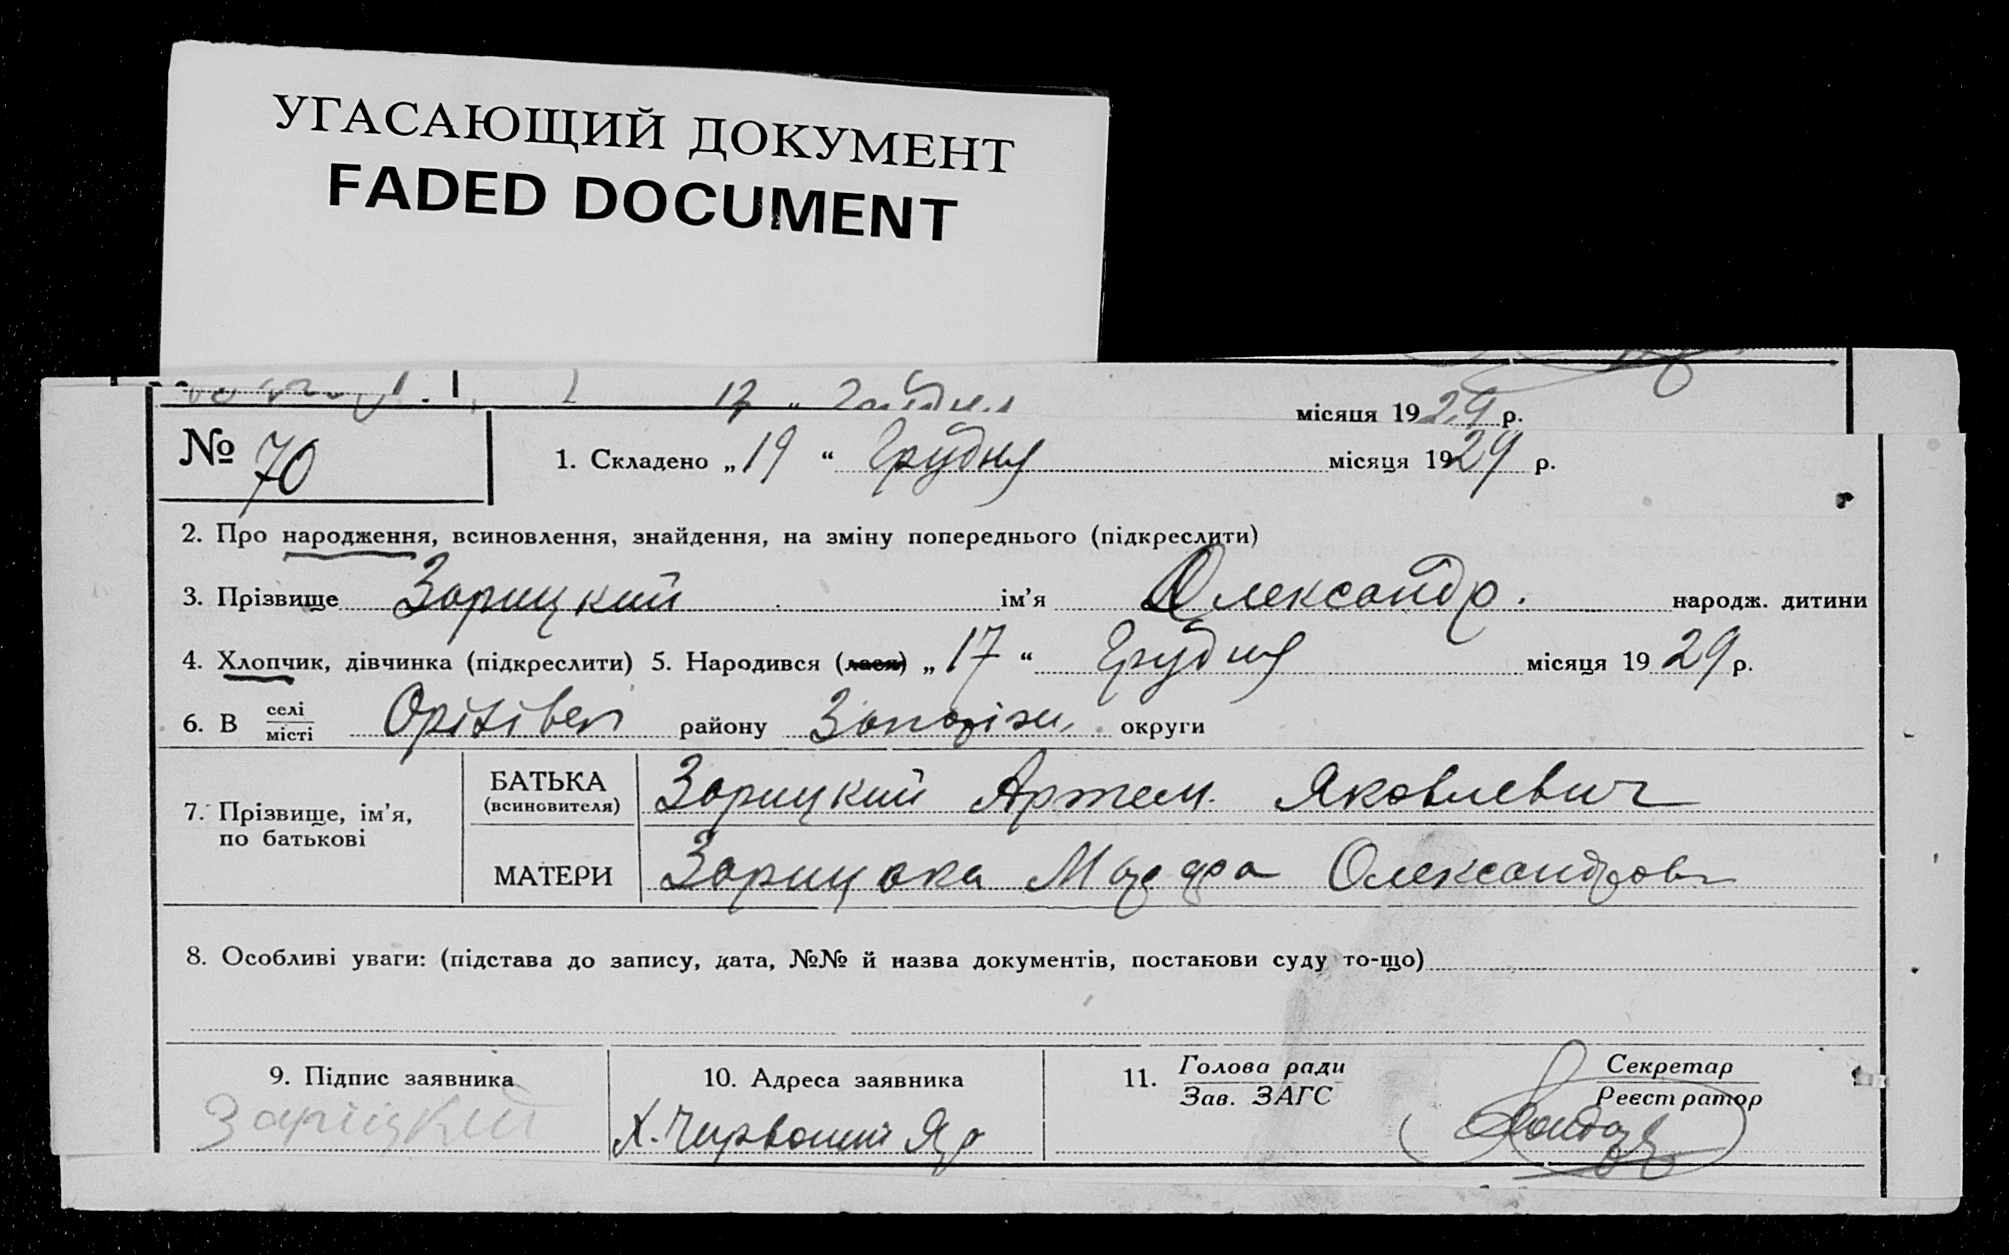 УГАСАЮЩИЙ ДОКУМЕНТ
FADED DOCUMENT
17 " місяця 1929 р.
№ 70
1. Складено „ 19 “ Грудня місяця 1929 р.
2. Про народження, всиновлення, знайдення, на зміну попереднього (підкреслити)
3. Прізвище Зорицкий ім’я Олександр. народж. дитини
4. Хлопчик, дівчинка (підкреслити) 5. Народився (лася) „ 17 “ Грудня місяця 1929 р.
6. В селі
місті
району округи
7. Прізвище, ім’я,
по батькові
БАТЬКА
(всиновителя)
Зорицкий Артем. Яковлевич
МАТЕРИ
Олександров
8. Особливі уваги: (підстава до запису, дата, №№ й назва документів, постанови суду то-що)
9. Підпис заявника
Заріцкий
10. Адреса заявника
Х. Червоний Яр
11. Голова ради
Зав. ЗАГС
Секретар
Реєстратор